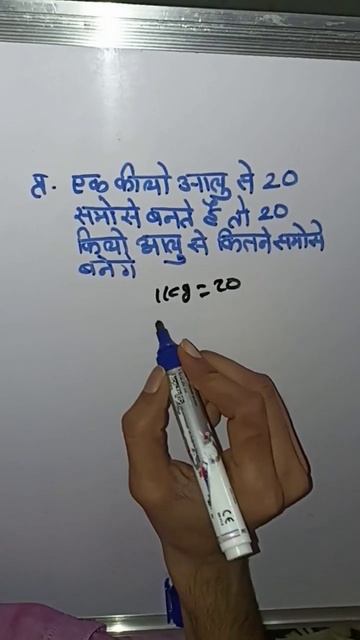 प्र. एक कीलो आलु से 20
समोसे बनते हैं तो 20
किलो आलु से कितने समोसे
बनेगे
1kg = 20